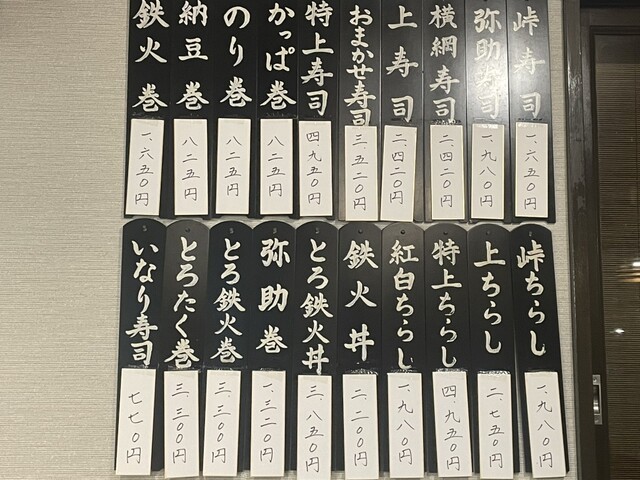 峠寿司 一、六五〇円
弥助寿司 一、九八〇円
横綱寿司 二、四二〇円
上寿司 二、四二〇円
おまかせ寿司 三、五二〇円
特上寿司 四、九五〇円
かっぱ巻 八二五円
のり巻 八二五円
納豆巻 八二五円
鉄火巻 一、六五〇円
峠ちらし 一、九八〇円
上ちらし 二、七五〇円
特上ちらし 四、九五〇円
紅白ちらし 一、九八〇円
鉄火丼 二、二〇〇円
とろ鉄火丼 三、八五〇円
弥助巻 一、三二〇円
とろ鉄火巻 三、三〇〇円
とろたく巻 三、三〇〇円
いなり寿司 七七〇円